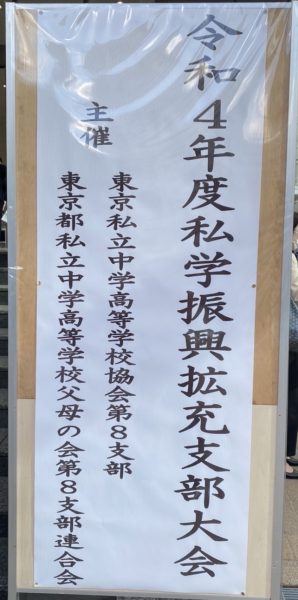 令和4年度私学振興拡充支部大会
主催
東京私立中学高等学校協会第8支部
東京都私立中学高等学校父母の会第8支部連合会